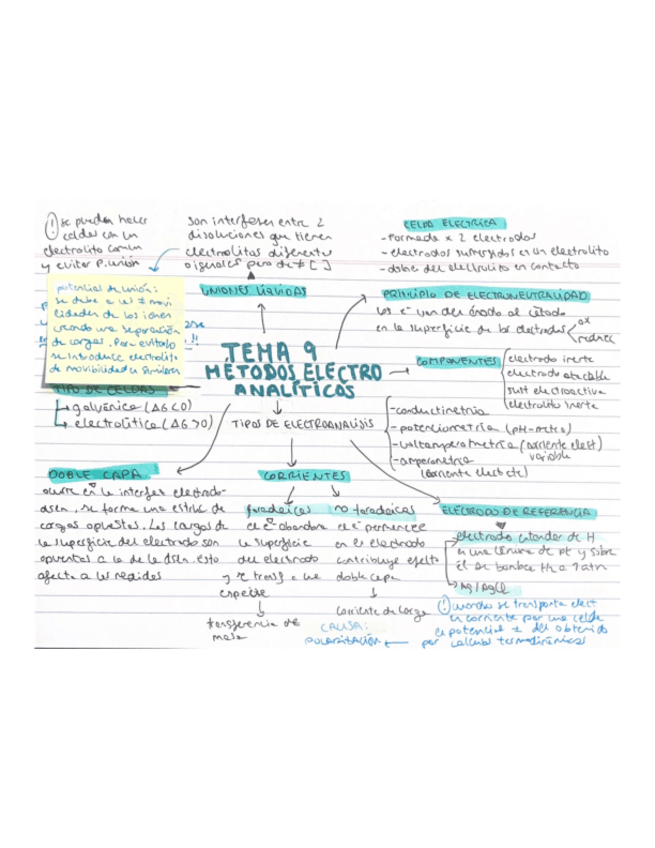 ! se pueden hacer
celdas con un
electrolito común
y evitar P.unión
potencial de unión:
se debe a las ≠ movi
lidades de los iones
creando una separación
de cargas. Para evitarlo
se introduce electrolito
de movibilidades similares
son interfases entre 2
disoluciones que tienen
electrolitos diferentes
o iguales pero de ≠ [ ]
UNIONES LÍQUIDAS
CELDA ELÉCTRICA
- Formada x 2 electrodos
- electrodos sumergidos en un electrolito
- dobles del electrolito en contacto
PRINCIPIO DE ELECTRONEUTRALIDAD
los e⁻ van del ánodo al cátodo
en la superficie de los electrodos
ox
reduce
TEMA 9
METODOS ELECTRO
ANALÍTICOS
COMPONENTES
electrodo inerte
electrodo atacable
sust electroactiva
electrolito inerte
TIPO DE CELDAS
galvánica (ΔG<0)
electrolítica (ΔG>0)
TIPOS DE ELECTROANÁLISIS
- conductimetría
- potenciometría (pH-metro)
- voltamperometría (corriente elect)
variable
- amperometría
(corriente elect cte)
DOBLE CAPA
ocurre en la interfase electrodo-
dsln, se forma una estruc de
cargas opuestas. Las cargas de
la superficie del electrodo son
opuestas a la de la dsln. esto
afecta a las medidas
CORRIENTES
faradaicas
el e⁻ abandona
la superficie
del electrodo
y se transf a una
especie
transferencia de
masa
no faradaicas
el e⁻ permanece
en el electrodo
contribuye efecto
doble capa
corriente de carga
CAUSA:
POLARIZACIÓN
ELECTRODO DE REFERENCIA
electrodo estandar de H
en una lámina de pt y sobre
él se bombea H₂ a 1 atm
Ag/AgCl
! cuando se transporta elect
en corriente por una celda
el potencial ≠ del obtenido
por cálculos termodinámicos